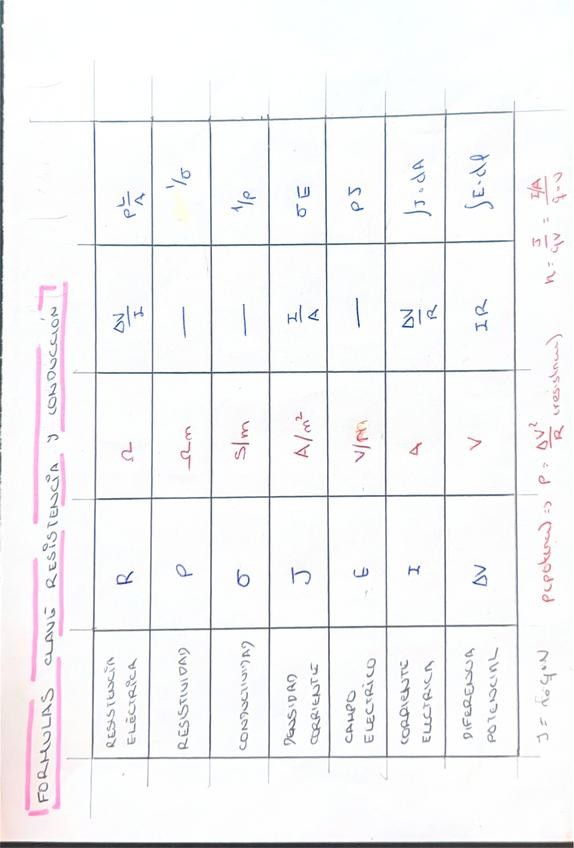 FORMULAS CLAVE RESISTENCIA Y CONDUCCIÓN
RESISTENCIA ELÉCTRICA R Ω ΔV/I ρL/A
RESISTIVIDAD ρ Ωm — 1/σ
CONDUCTIVIDAD σ S/m — 1/ρ
DENSIDAD CORRIENTE J A/m² I/A σE
CAMPO ELECTRICO E V/m — ρJ
CORRIENTE ELECTRICA I A ΔV/R ∫J·dA
DIFERENCIA POTENCIAL ΔV V IR ∫E·dl
J = n·q·v P(potencia) => P = ΔV²/R (resistencia) n = J/qv = I/A/q·v